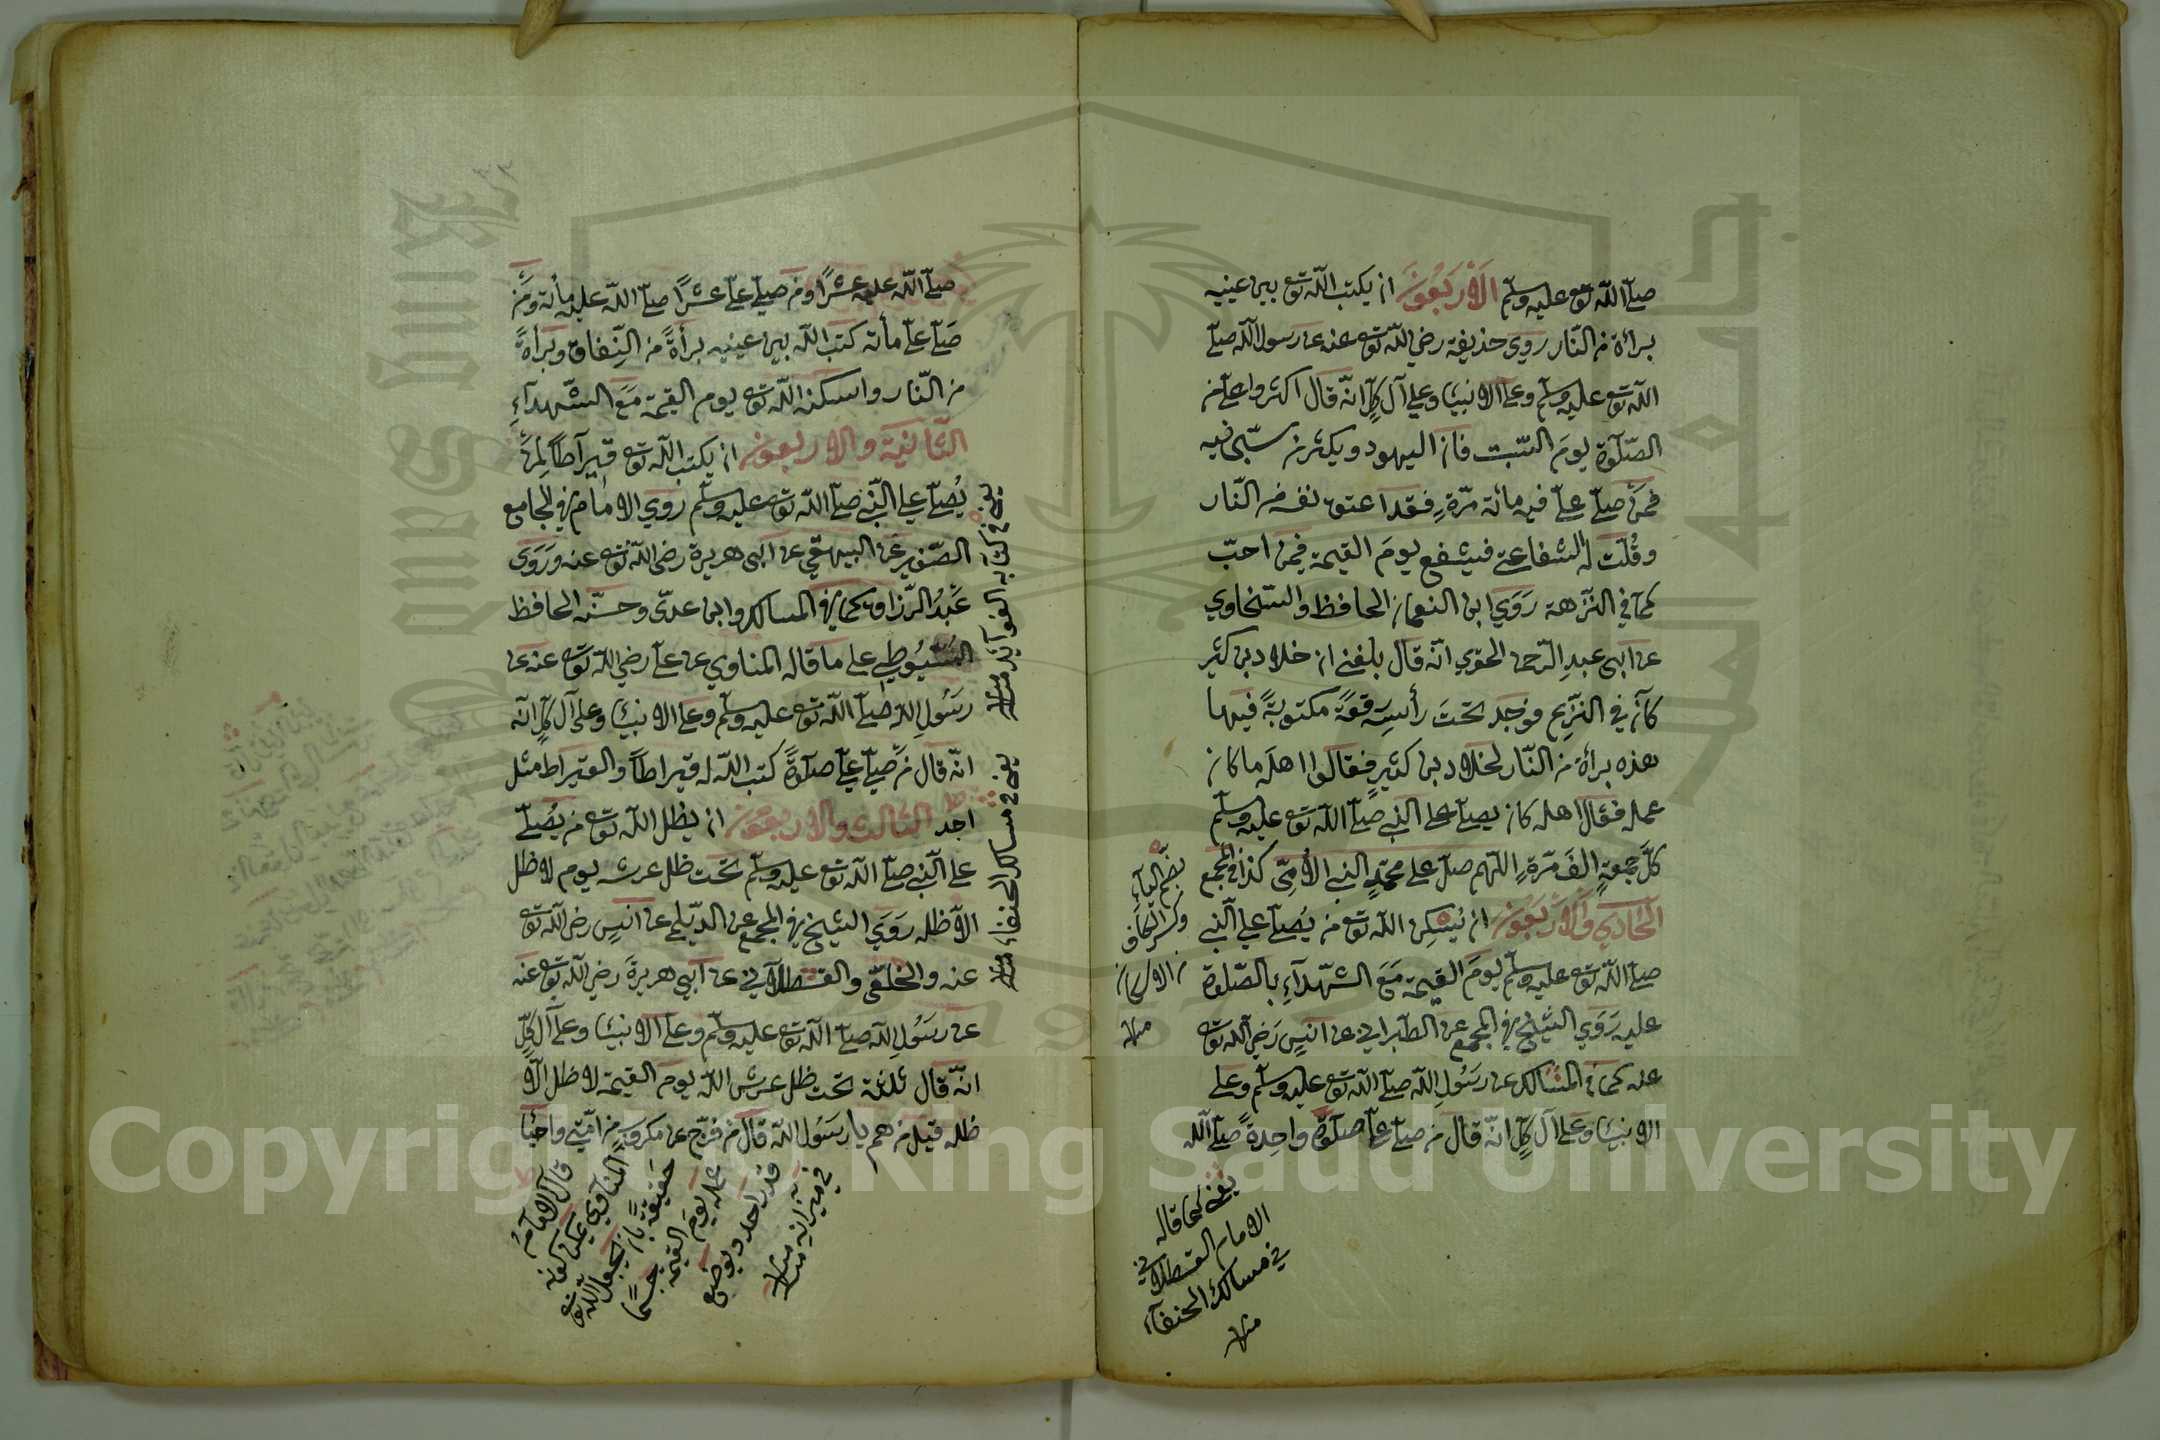 صلّى اللّه تع عليه وسلّم الاربعون ان يكتب اللّه تع بين عينيه
براءة من النّار روى حذيفة رضي اللّه تع عنه عن رسول اللّه صلّى
اللّه تع عليه وسلّم وعلى الانبيا وعلى آل كلٍّ انّه قال اكثروا علىّ من
الصّلوة يوم السّبت فان اليهود يكثر من سبّى فيه
فمن صلّى علىّ فيه مائة مرّةٍ فقد اعتق نفسه من النّار
وحُلّت له الشفاعة فيشفع يومَ القيمة فيمن احبّ
كما في النّزهة رَوَى ابن النعمان الحافظ والسّخاوي
عن ابى عبد الرّحمن انّه قال بلغنى ان خلاد بن كثير
كان في النّزع فوجد تحتَ رأسه رقعةً مكتوبةً فيها
هذه براءة من النّار لخلاد بن كثيرٍ فقالوا اهله ما كان
عمله فقال اهله كان يصلّى على النّبى صلّى اللّه تع عليه وسلّم
كلَّ جمعةٍ الفَ مَرّةٍ اللّهم صلّ على محمّدٍ النبى الأمّىّ كذا في المجمع
الحادى والاربعون ان يُسْكِن اللّه تع من يُصلّى على النّبى
صلّى اللّه تع عليه وسلّم يومَ القيمة مَعَ الشّهدآءِ بالصّلوة
عليه رَوَى الشّيخ في المجمع عن الطبرانى عن انسٍ رَضي اللّه تع
عنه كما في المسالك عن رسُولِ اللّه صلّى اللّه تع عليه وسلّم وعلى
الانبيا وعلى آل كلٍّ انّه قال من صلّى علىّ صلوةً واحِدةً صلّى اللّه
بضمّ اليآءِ
وكسر الكاف
من الاسكان
منه
يعنى كما قاله
الامام القسطلانى
في مسالك الحنفآء
منه
صلّى اللّه عليه عشرًا ومن صلّى علىّ عشرًا صلّى اللّه عليه مأئة ومَن
صَلّى علىّ مأئة كتب اللّه بين عينيه برأةً من النّفاق وبرأةً
من النّار واسكنه اللّه تع يوم القيمة مَعَ الشّهدآءِ
الثّانية والاربعون ان يكتب اللّه تع قيرآطًا لمن
يُصلّى على النّبى صلّى اللّه تع عليه وسلّم روى الامام في الجامع
الصّغير عن البيهقى عن ابى هريرة رضى اللّه تع عنه ورَوَى
عَبدُ الرّزاق كما في المسالك وابن عدىّ وحسّنه الحافظ
السُّيُوطى على ما قاله المناوى عن علىّ رضي اللّه تع عنه عن
رسُولِ اللّه صلّى اللّه تع عليه وسلّم وعلى الانبيا وعلى آل كلٍّ انّه
انّه قال من صلّى علىّ صلوةً كتب اللّه له قيراطًا والقيراط مثل
احد الثالث والاربعون ان يظل اللّه تع من يُصلّى
على النّبى صلّى اللّه تع عليه وسلّم تحت ظل عرشه يوم لا ظل
الّا ظله رَوَى الشيخ في المجمع عن الدّيلمى عن انسٍ رضي اللّه تع
عنه والخلعّى والقسطلانى عن ابى هريرةَ رضي اللّه تع عنه
عن رسُولِ اللّه صلّى اللّه تع عليه وسلّم وعلى الانبيا وعلى آل كلٍّ
انّه قال ثلثة تحت ظل عرش اللّه يوم القيمة لا ظل الّا
ظله قيل من هم يا رسُول اللّه قال من فرّج عن مكروبٍ من امّتى واحيا
يعنى في كتاب الفوآئد منه
يعنى في مسالك الحنفا منه
قال الامام
المناوى يمكن كونه
حقيقةً بان يجعل اللّه تع
عمله يومَ القيمة جسمًا
قدر احد ويوضع
في ميزانه منه
Copyright © King Saud University
جامعة الملك سعود
King Saud University